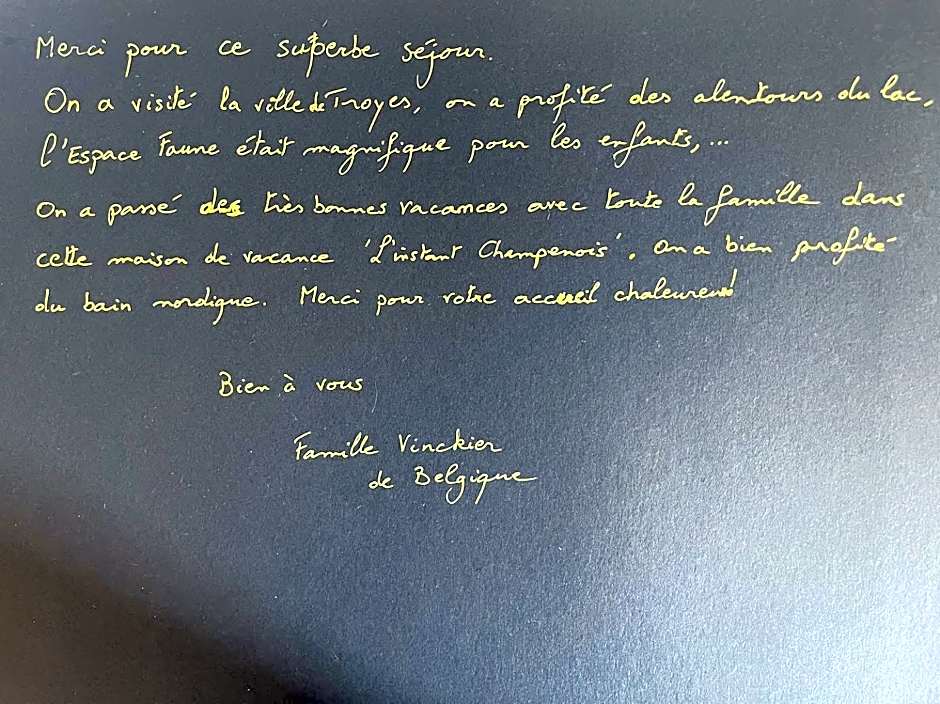 Merci pour ce superbe séjour.
On a visité la ville de Troyes, on a profité des alentours du lac,
l'Espace Faune était magnifique pour les enfants, ...
On a passé des très bonnes vacances avec toute la famille dans
cette maison de vacance 'L'instant Champenois'. On a bien profité
du bain nordique. Merci pour votre accueil chaleureux!
Bien à vous
Famille Vinckier
de Belgique